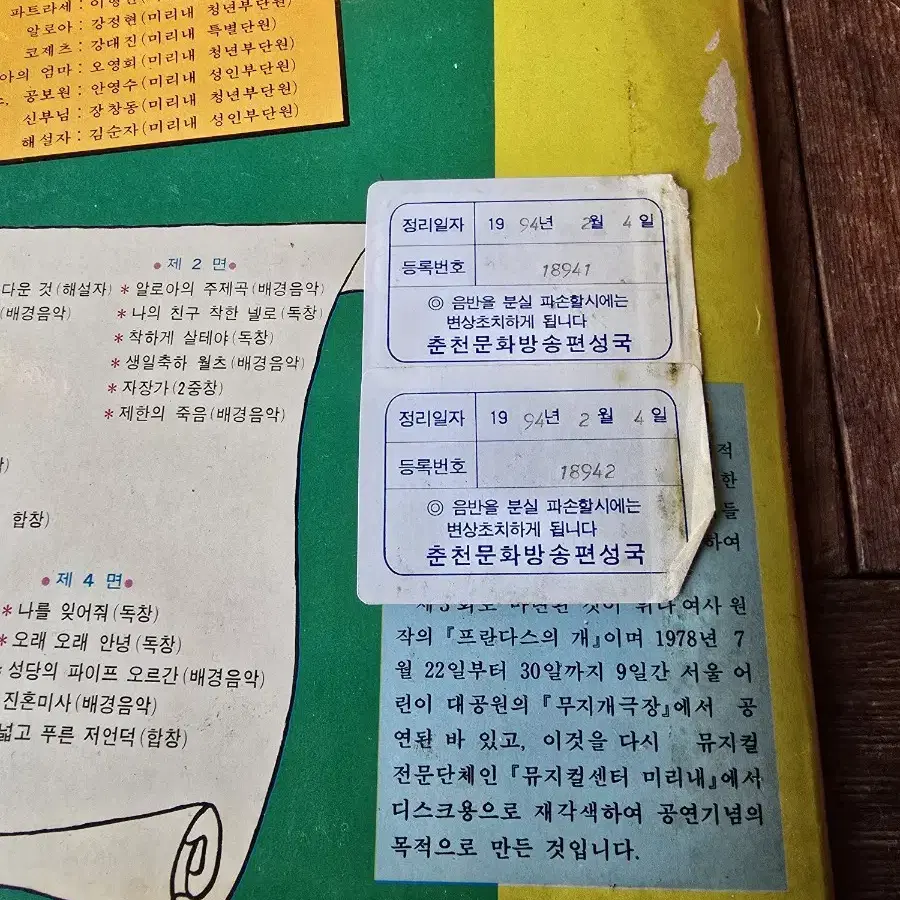 파트라세 :
알로아 : 강정현(미리내 청년부단원)
코제츠 : 강대진(미리내 특별단원)
아의 엄마 : 오영희(미리내 청년부단원)
공보원 : 안영수(미리내 성인부단원)
신부님 : 장창동(미리내 청년부단원)
해설자 : 김순자(미리내 성인부단원)
● 제 2 면 ●
다운 것(해설자) * 알로아의 주제곡(배경음악)
(배경음악) * 나의 친구 착한 넬로(독창)
* 착하게 살테야(독창)
* 생일축하 왈츠(배경음악)
* 자장가(2중창)
* 제한의 죽음(배경음악)
합창)
● 제 4 면 ●
* 나를 잊어줘(독창)
* 오래 오래 안녕(독창)
성당의 파이프 오르간(배경음악)
진혼미사(배경음악)
넓고 푸른 저언덕(합창)
정리일자 19 94년 2월 4일
등록번호 18941
◎ 음반을 분실 파손할시에는
변상초치하게 됩니다
춘천문화방송편성국
정리일자 19 94년 2월 4일
등록번호 18942
◎ 음반을 분실 파손할시에는
변상초치하게 됩니다
춘천문화방송편성국
적
한
들
하여
제3회로 마련된 것이 위다여사 원
작의 『프란다스의 개』이며 1978년 7
월 22일부터 30일까지 9일간 서울 어
린이 대공원의 『무지개극장』에서 공
연된 바 있고, 이것을 다시 뮤지컬
전문단체인 『뮤지컬센터 미리내』에서
디스크용으로 재각색하여 공연기념의
목적으로 만든 것입니다.